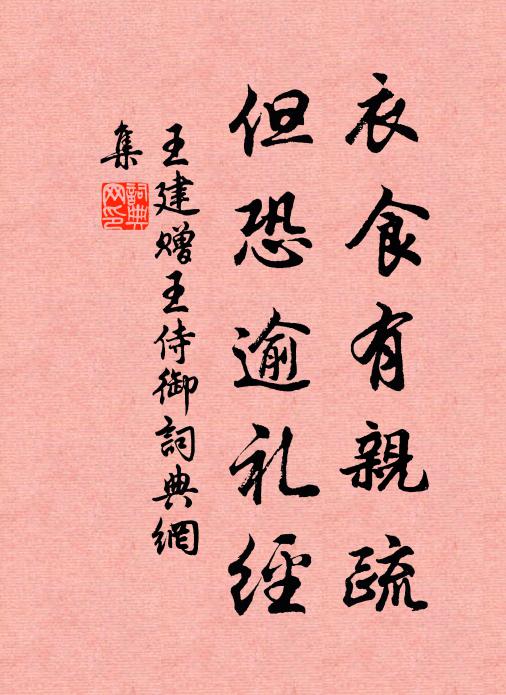 衣食有親疏
但恐逾礼經
王建赠王侍御詞典網
集
詞典网印